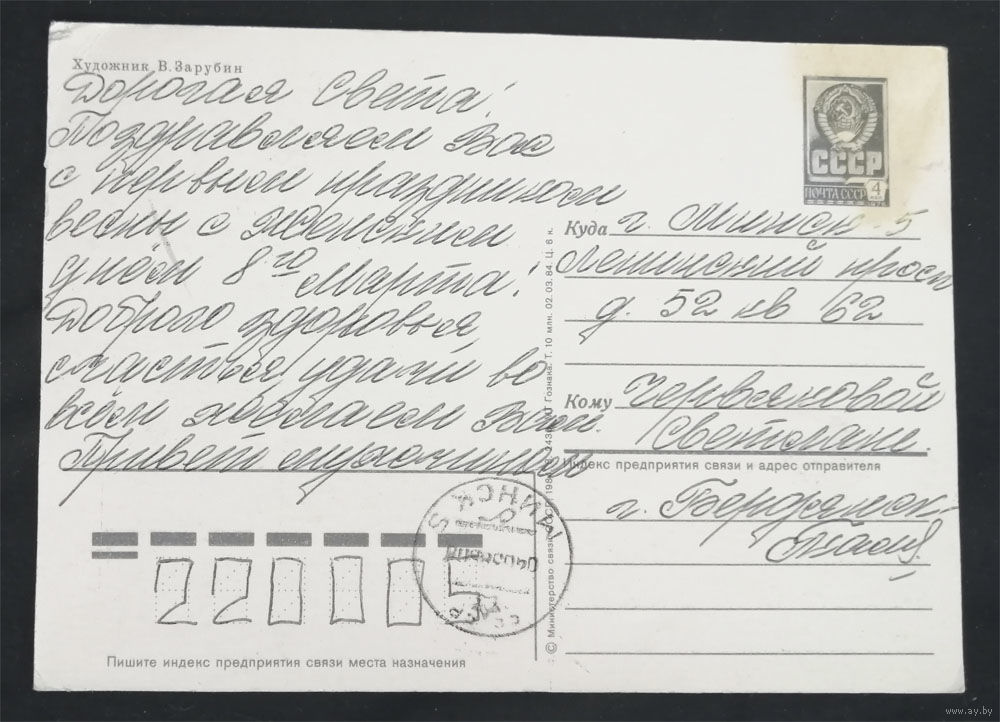 Художник В. Зарубин
Дорогая Света!
Поздравляем Вас
с первым праздником
весны с женским
днём 8го Марта!
Доброго здоровья,
счастья, удачи во
всём желаем Вам.
Привет мужчинам
СССР
ПОЧТА СССР 4
Куда г. Минск-5
Ленинский просп
д. 52 кв 62
Кому Червяковой
Светлане.
Индекс предприятия связи и адрес отправителя
г. Бердянск-
МИНСК 5
220005
Пишите индекс предприятия связи места назначения
© Министерство связи СССР
Гознака. Т. 10 млн. 02.03.84. Ц. 6 к.
www.ay.by